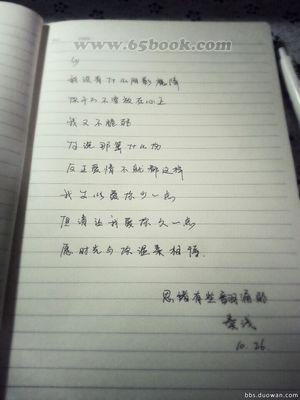 www.65book.com
我没有什么阴影魔障
你千万不要放在心上
我又不脆弱
何况那算什么伤
反正爱情不就都这样
我可以爱你少一点
但请让我爱你久一点
愿时光与你温柔相待
思绪有些翻涌
10.26
bbs.duowan.com